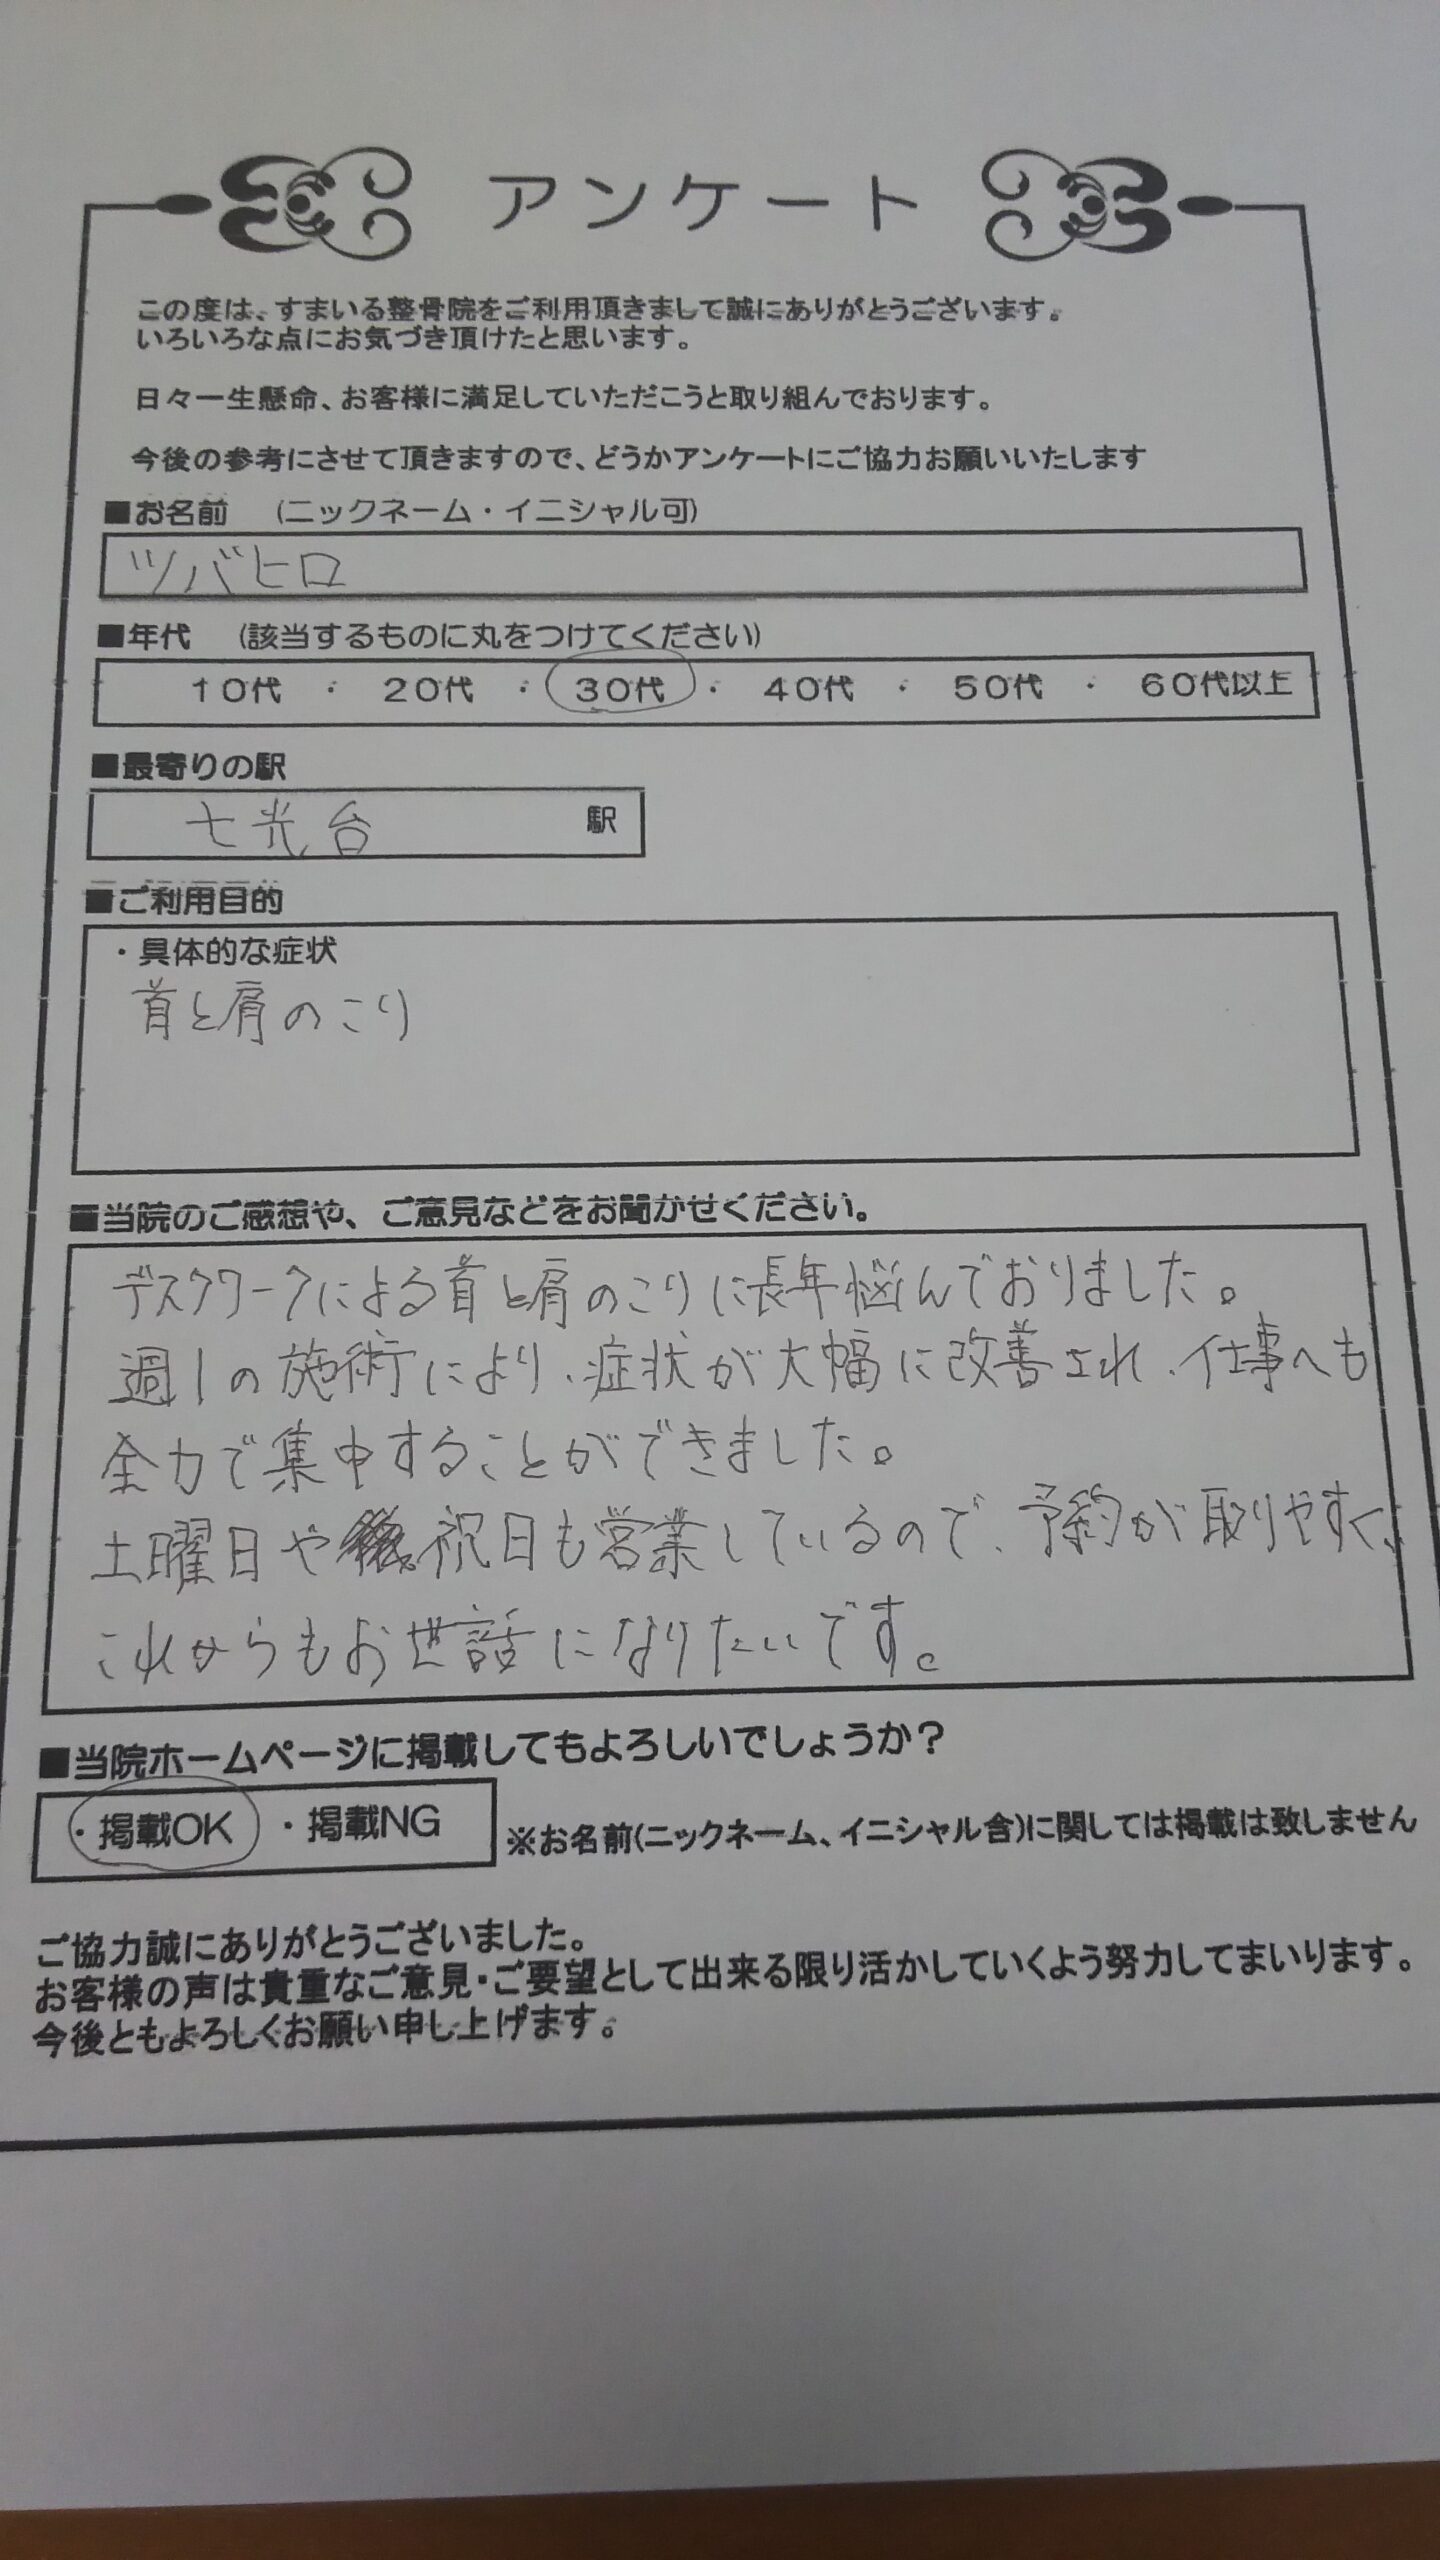 アンケート
この度は、すまいる整骨院をご利用頂きまして誠にありがとうございます。
いろいろな点にお気づき頂けたと思います。
日々一生懸命、お客様に満足していただこうと取り組んでおります。
今後の参考にさせて頂きますので、どうかアンケートにご協力お願いいたします
■お名前 (ニックネーム・イニシャル可)
ツバヒロ
■年代 (該当するものに丸をつけてください)
10代 ・ 20代 ・ 30代 ・ 40代 ・ 50代 ・ 60代以上
■最寄りの駅
七光台 駅
■ご利用目的
・具体的な症状
首と肩のこり
■当院のご感想や、ご意見などをお聞かせください。
デスクワークによる首と肩のこりに長年悩んでおりました。
週1の施術により、症状が大幅に改善され、仕事へも
全力で集中することができました。
土曜日や祝日も営業しているので、予約が取りやすく、
これからもお世話になりたいです。
■当院ホームページに掲載してもよろしいでしょうか？
・掲載OK ・掲載NG ※お名前(ニックネーム、イニシャル含)に関しては掲載は致しません
ご協力誠にありがとうございました。
お客様の声は貴重なご意見・ご要望として出来る限り活かしていくよう努力してまいります。
今後ともよろしくお願い申し上げます。